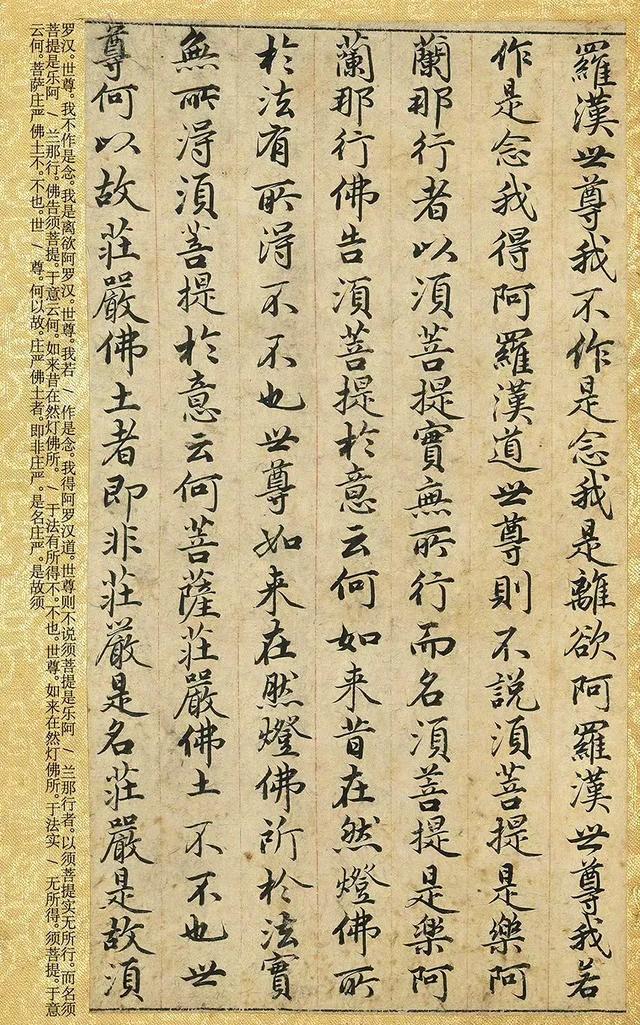 羅漢世尊我不作是念我是離欲阿羅漢世尊我若
作是念我得阿羅漢道世尊則不說須菩提是樂阿
蘭那行者以須菩提實無所行而名須菩提是樂阿
蘭那行佛告須菩提於意云何如来昔在然燈佛所
於法有所得不不也世尊如来在然燈佛所於法實
無所得須菩提於意云何菩薩莊嚴佛土不不也世
尊何以故莊嚴佛土者即非莊嚴是名莊嚴是故須
罗汉。世尊。我不作是念。我是离欲阿罗汉。世尊。我若/作是念。我得阿罗汉道。世尊则不说须菩提是乐阿/兰那行者。以须菩提实无所行。而名须
菩提是乐阿/兰那行。佛告须菩提。于意云何。如来昔在然灯佛所。/于法有所得不。不也。世尊。如来在然灯佛所。于法实/无所得。须菩提。于意
云何。菩萨庄严佛土不。不也。世/尊。何以故。庄严佛土者。即非庄严。是名庄严。是故须